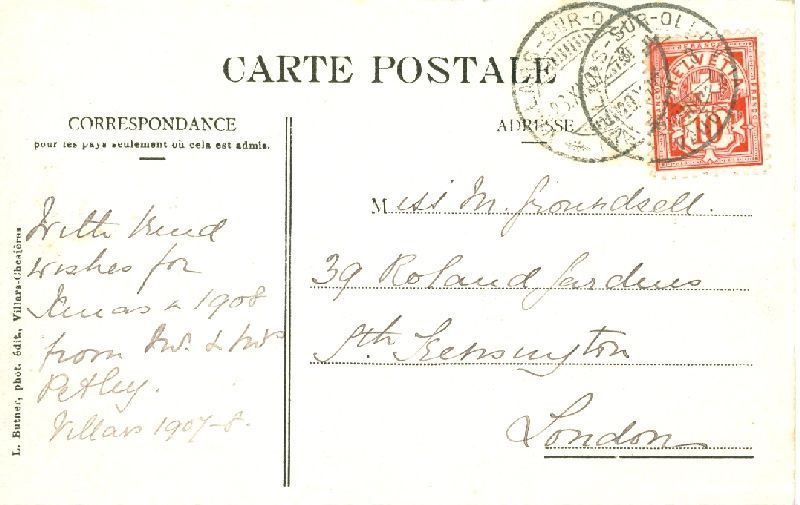 CARTE POSTALE
CORRESPONDANCE
pour les pays seulement où cela est admis.
ADRESSE
HELVETIA
FRANCO
10
With kind
wishes for
Xmas & 1908
from Mr. & Mrs
Petley.
Villars 1907-8.
Miss M. Groundsell.
39 Roland Gardens
Sth. Kensington
London
L. Butner, phot. édit., Villars-Chesières